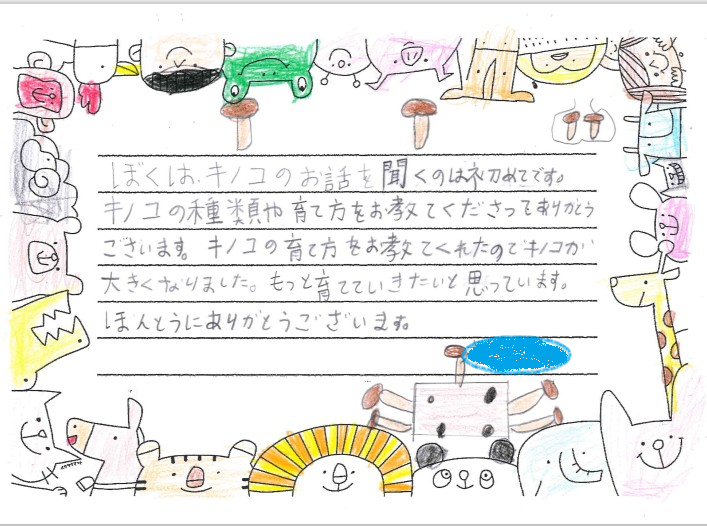 ぼくは、キノコのお話を聞くのは初めてです。
キノコの種類や育て方をお教てくださってありがとう
ございます。キノコの育て方をお教てくれたのでキノコが
大きくなりました。もっと育てていきたいと思っています。
ほんとうにありがとうございます。